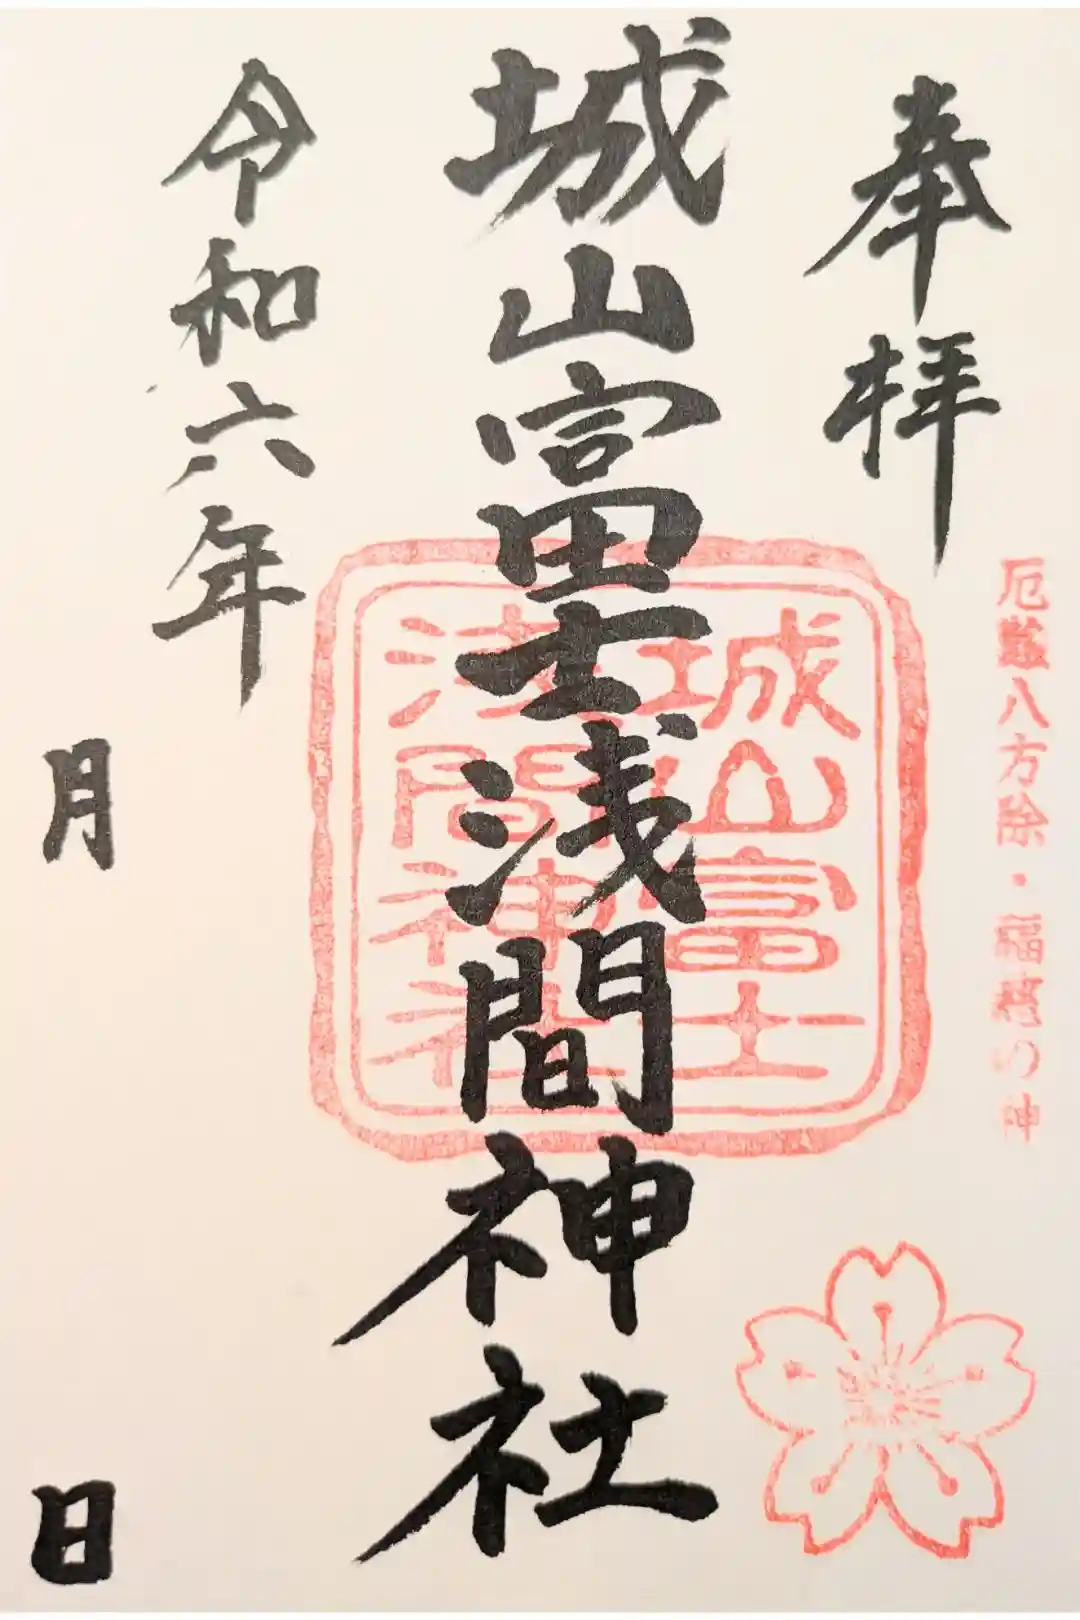 奉拝
厄難八方除・福徳の神
城山富士浅間神社
城山富士
浅間神社
令和六年
月
日